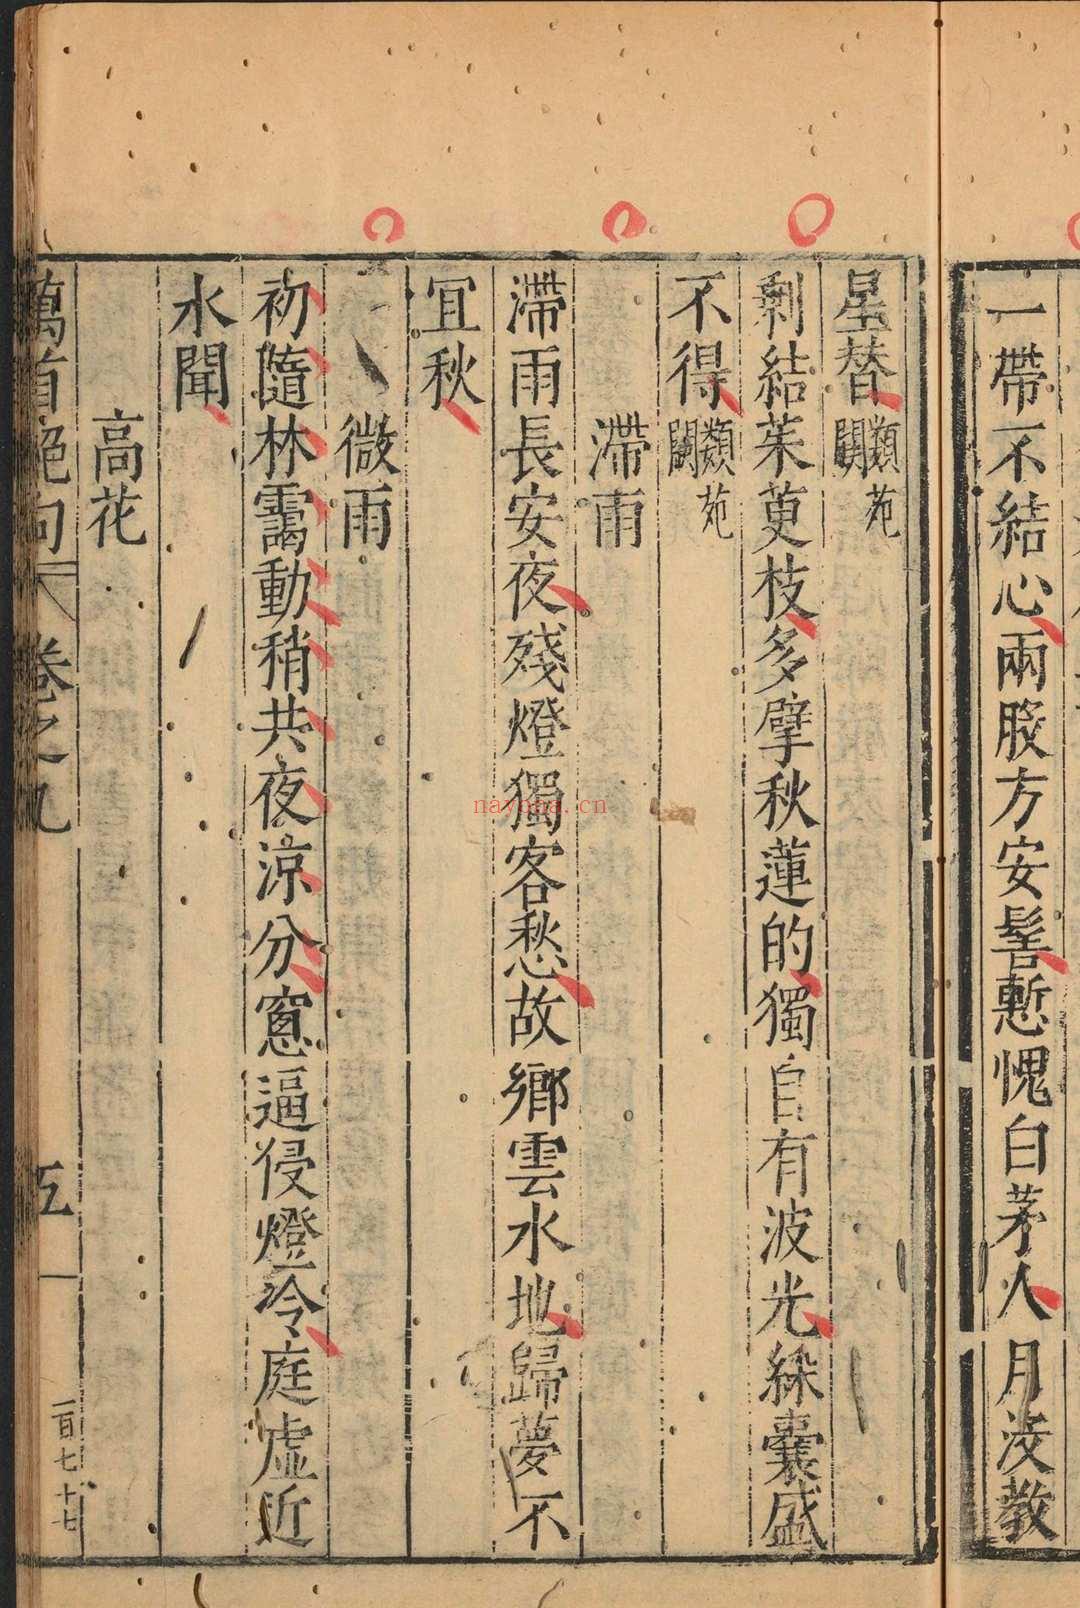 一帶不結心兩股方安髻慙愧白茅人月沒教
星替類苑闕
剩結茱萸枝多擘秋蓮的獨自有波光綵囊盛
不得類苑闕
滯雨
滯雨長安夜殘燈獨客愁故鄉雲水地歸夢不
宜秋
微雨
初隨林靄動稍共夜涼分窻逼侵燈冷庭虛近
水聞
高花
萬首絕句 卷之九 五
一百七十七
nayona.cn